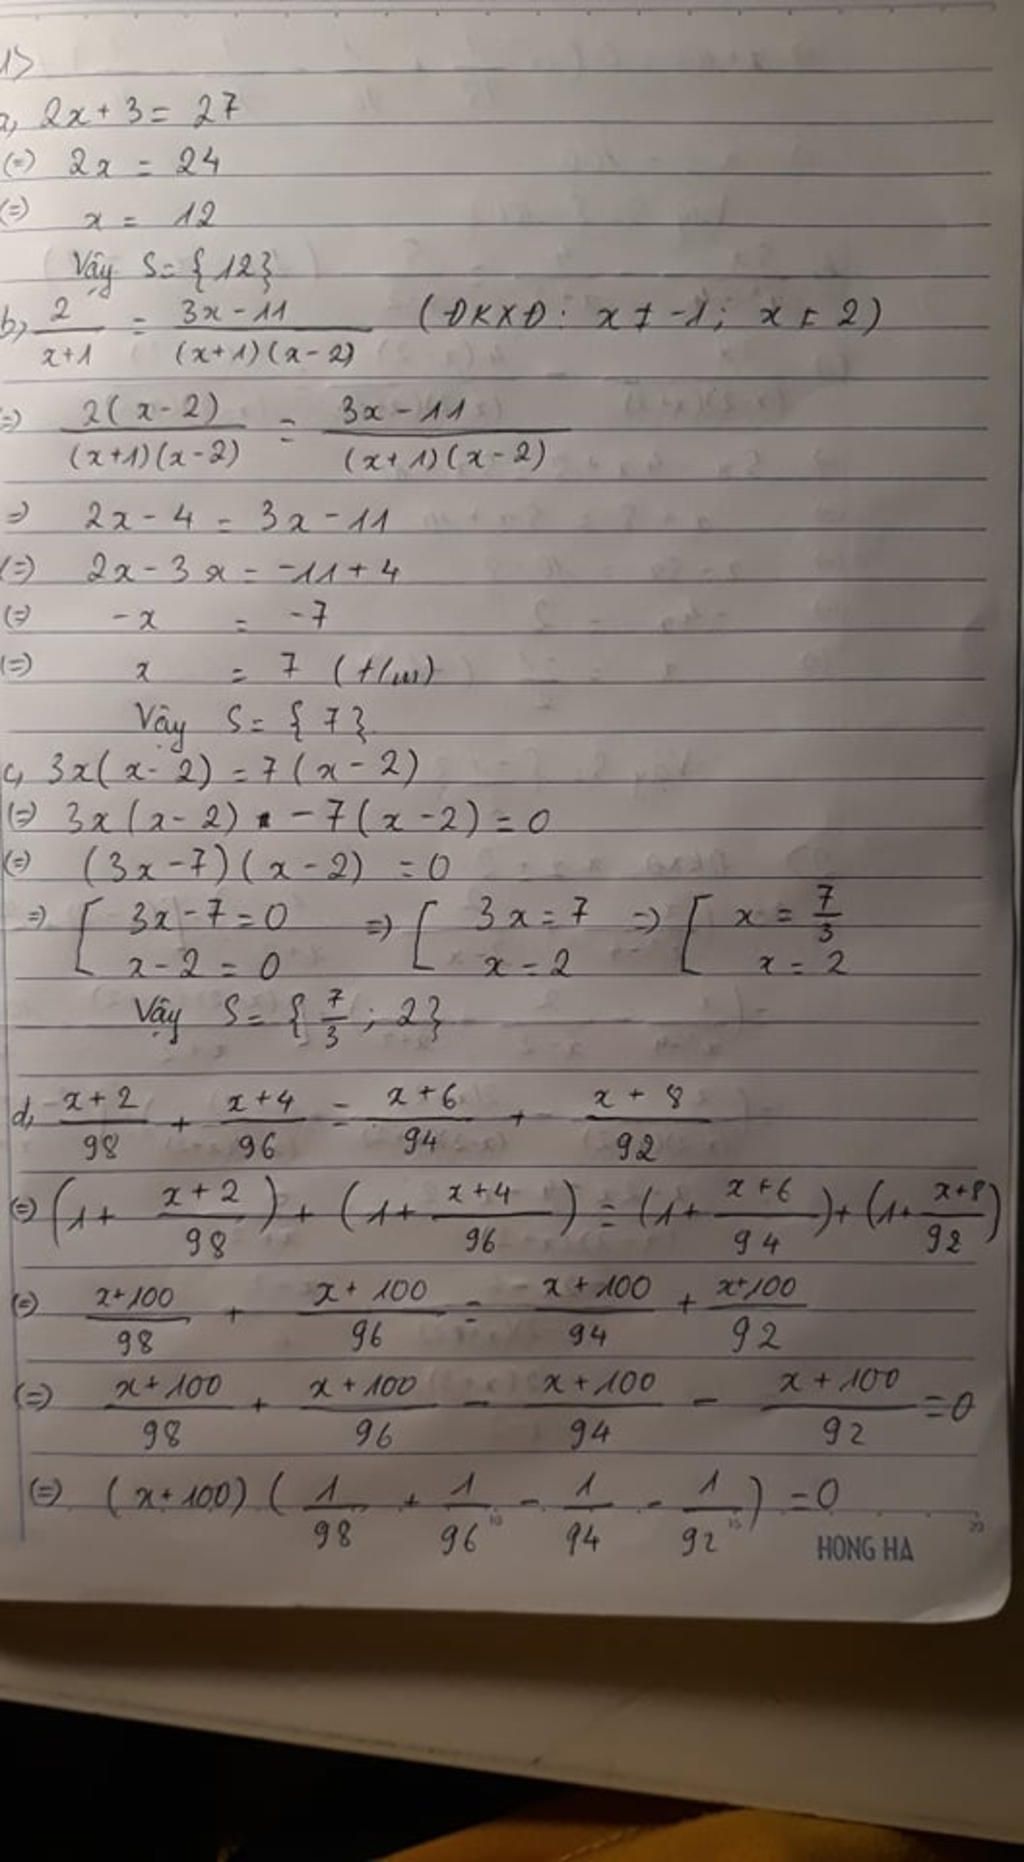 1>
a, 2x + 3 = 27
(=) 2x = 24
(=) x = 12
Vậy S = { 12 }
b, 2/(x+1) = (3x - 11)/((x+1)(x-2)) (ĐKXĐ: x ≠ -1; x ≠ 2)
(=) 2(x-2)/((x+1)(x-2)) = (3x - 11)/((x+1)(x-2))
=) 2x - 4 = 3x - 11
(=) 2x - 3x = -11 + 4
(=) -x = -7
(=) x = 7 (t/m)
Vậy S = { 7 }
c, 3x(x-2) = 7(x-2)
(=) 3x(x-2) - 7(x-2) = 0
(=) (3x-7)(x-2) = 0
=) [ 3x-7 = 0 =) [ 3x = 7 =) [ x = 7/3
x-2 = 0 x = 2 x = 2
Vậy S = { 7/3 ; 2 }
d, (x+2)/98 + (x+4)/96 = (x+6)/94 + (x+8)/92
(=) (1 + (x+2)/98) + (1 + (x+4)/96) = (1 + (x+6)/94) + (1 + (x+8)/92)
(=) (x+100)/98 + (x+100)/96 = (x+100)/94 + (x+100)/92
(=) (x+100)/98 + (x+100)/96 - (x+100)/94 - (x+100)/92 = 0
(=) (x+100)(1/98 + 1/96 - 1/94 - 1/92) = 0
HONG HA